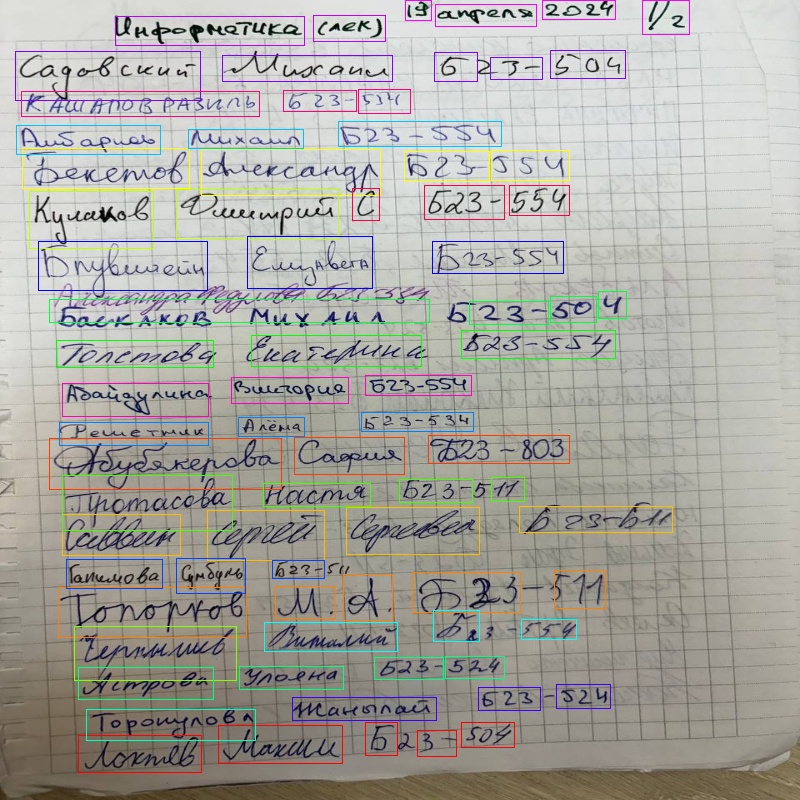 Информатика (лек) 19 апреля 2024 1/2
Садовский Михаил Б23-504
КАШАПОВ РАЗИЛЬ Б23-534
Амбарцев Михаил Б23-554
Бекетов Александр Б23-554
Кулаков Дмитрий С Б23-554
Елизавета Б23-554
Александра Федулова Б23-534
Баскаков Михаил Б23-504
Толстова Екатерина Б23-554
Абайдулина Виктория Б23-554
Решетник Алёна Б23-534
Абубякерова София Б23-803
Протасова Настя Б23-511
Саввин Сергей Сергеевич Б23-Б11
Галимова Сумбуль Б23-511
Топорков М. А. Б23-511
Чернышев Виталий Б23-554
Астрова Ульяна Б23-524
Торокулова Жаныпай Б23-524
Локтев Максим Б23-504